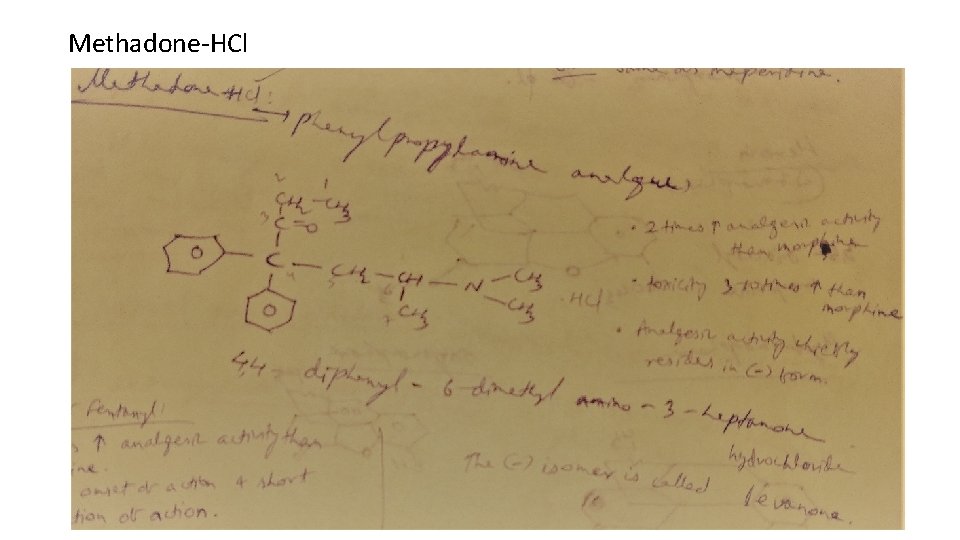 Methadone-HCl
same as meperidine.
Methadone HCl:
→ phenylpropylamine analgues,
2 1
CH2-CH3
3 C=O
C 4 - 5 CH2 - CH - N - CH3
CH3
6
7 CH3
.HCl
• 2 times ↑ analgesic activity
than morphine
• toxicity 3-10times ↑ than
morphine
• Analgesic activity chiefly
resides in (-) form.
4,4 - diphenyl - 6-dimethyl amino - 3 - heptanone
hydrochloride
The (-) isomer is called levanone.
Fentanyl:
↑ analgesic activity than
ine.
onset of action & short
tion of action.